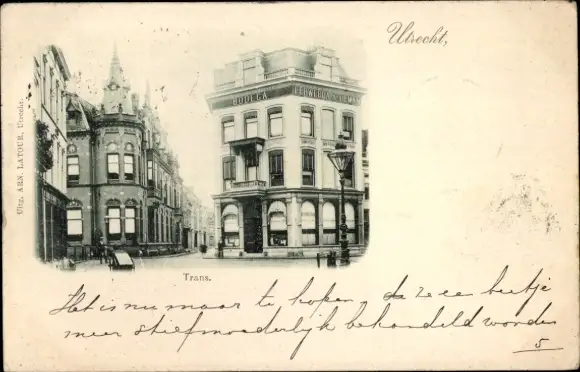 Utrecht,
Uitg. ARN. LATOUR, Utrecht.
BODEGA
Trans.
Het is nu maar te hopen, da ze een beetje
meer stiefmoederlijk behandeld worden
5